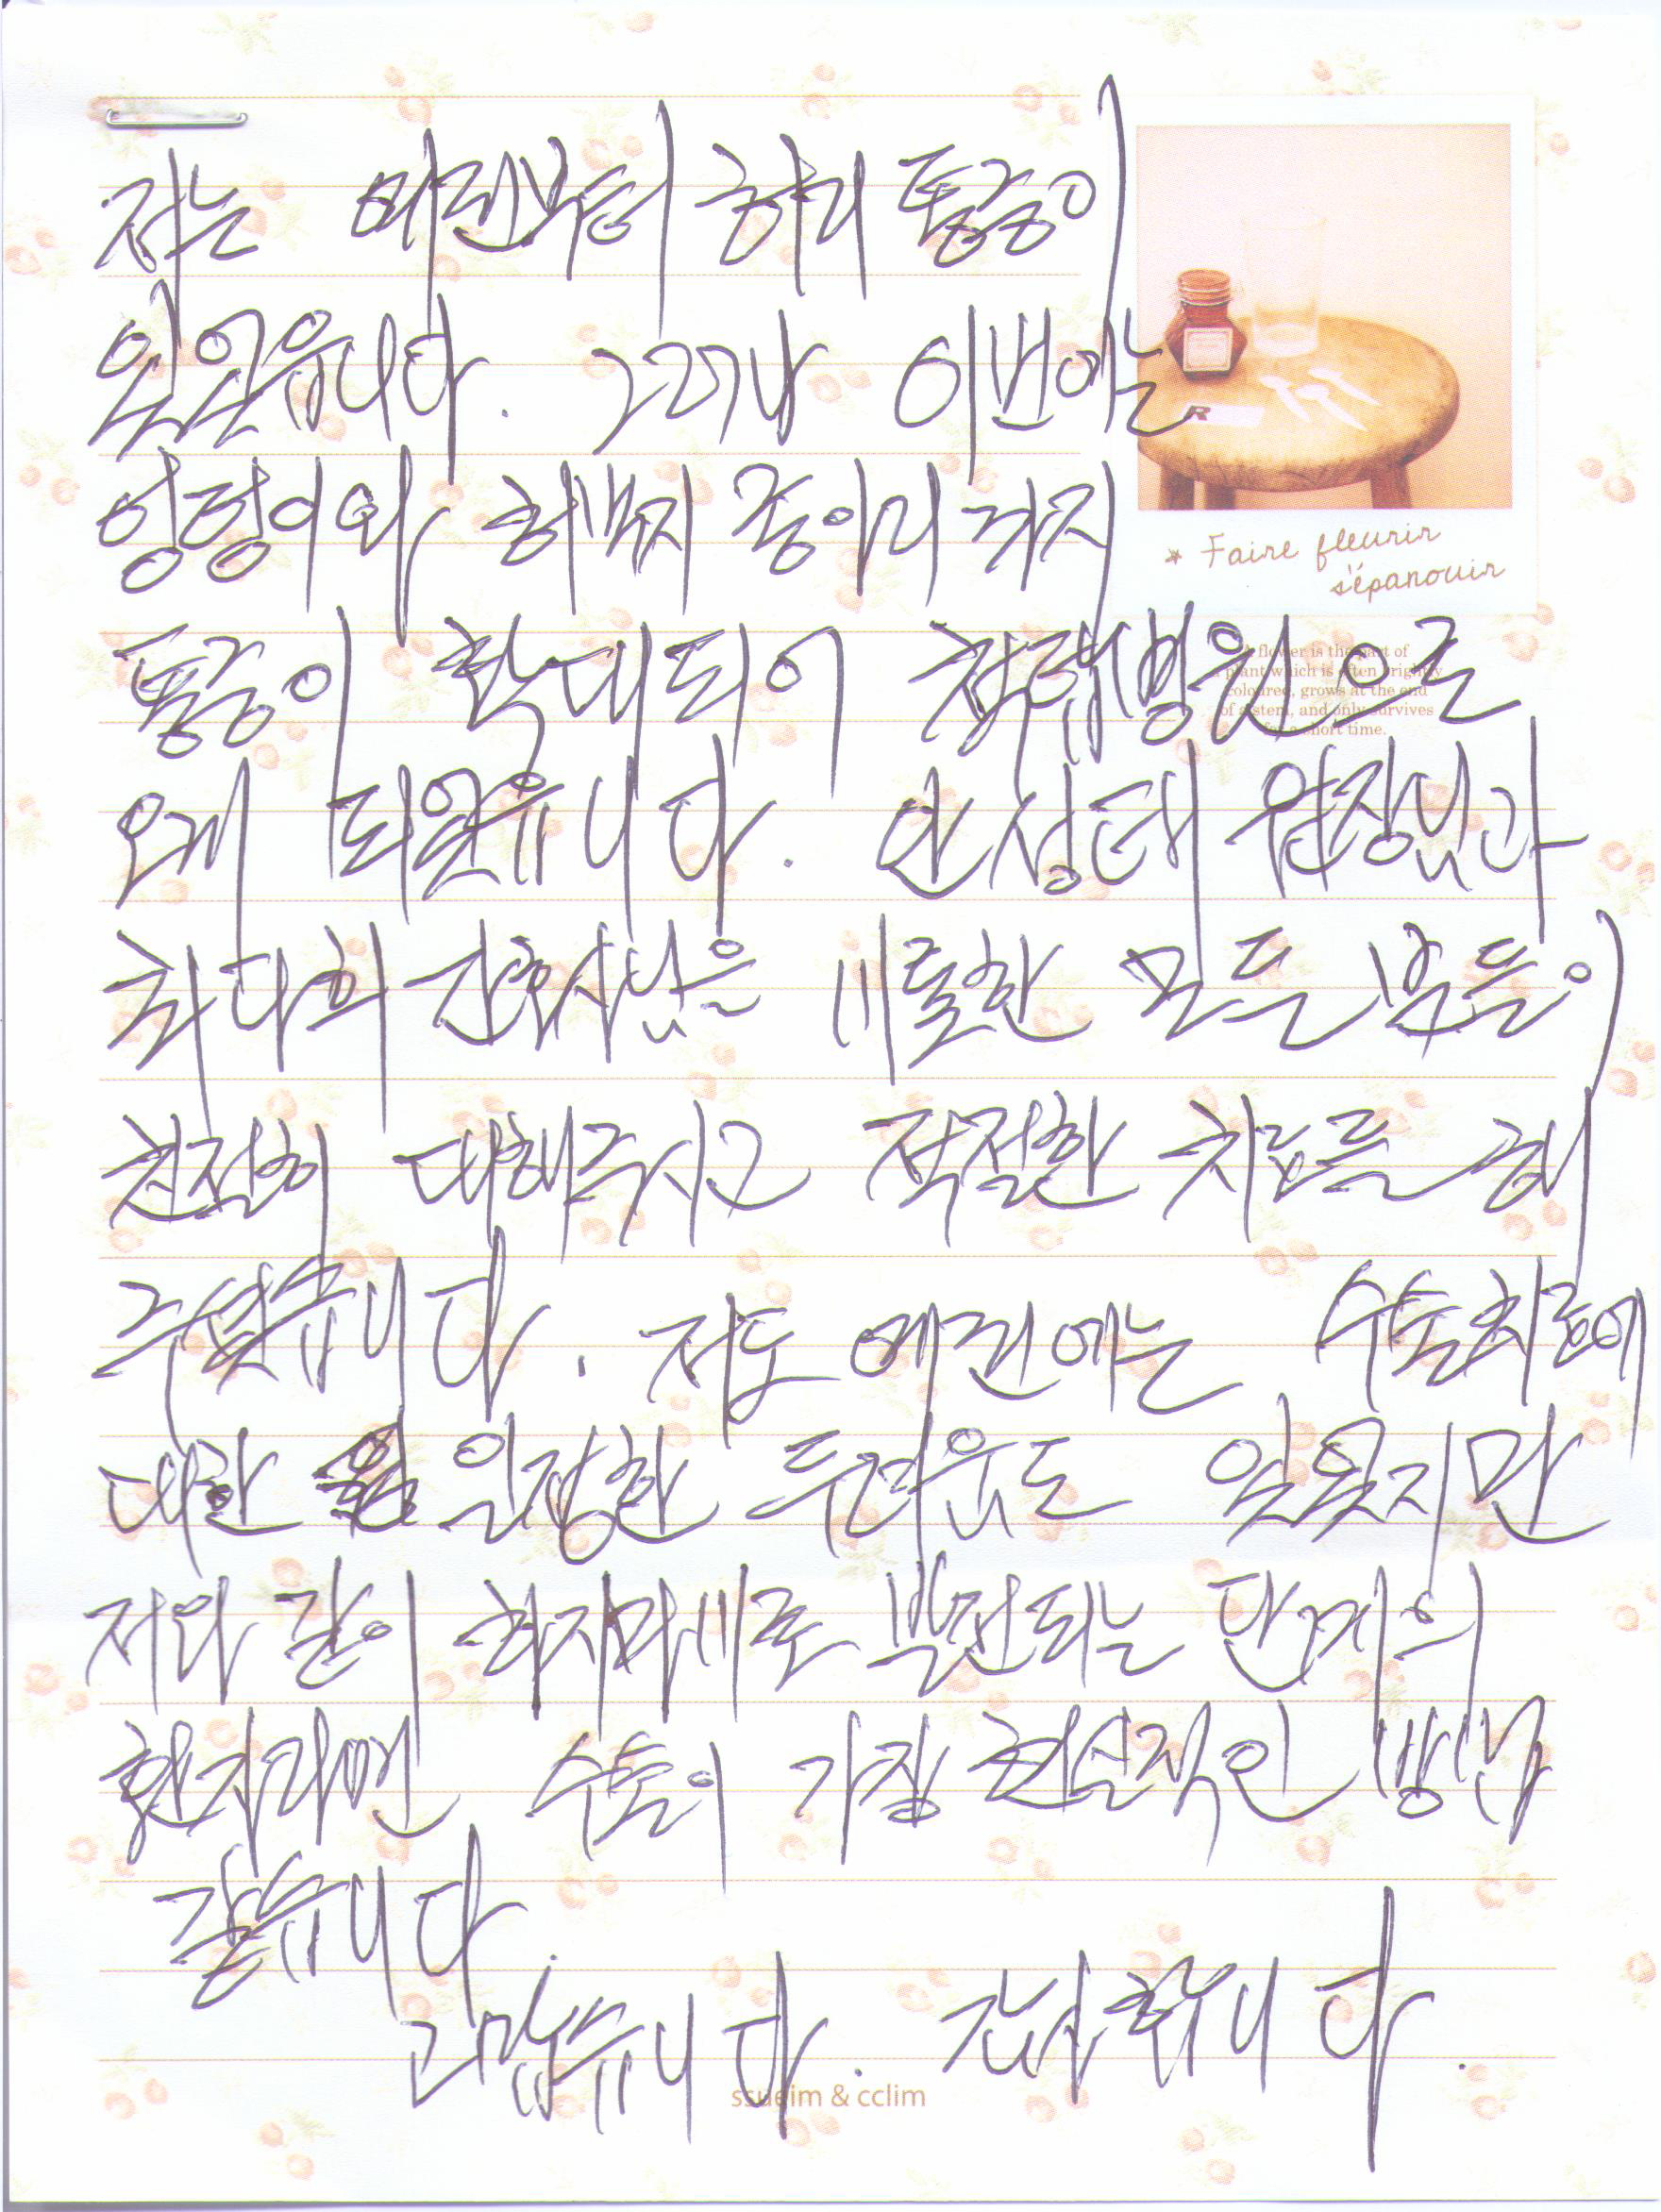 저는 예전부터 허리 통증이
있었습니다. 그러나 이번에는
엉덩이와 허벅지 종아리까지
통증이 확대되어 척탑병원으로
오게 되었습니다. 안성태 원장님과
최다희 간호사님을 비롯한 모든 분들이
친절히 대해주시고 적절한 치료를 해
주셨습니다. 저도 예전에는 수술치료에
대한 일정한 두려움도 있었지만
저와 같이 하지마비로 발전되는 단계의
환자라면 수술이 가장 현실적인 방법
같습니다.
고맙습니다. 감사합니다.
* Faire fleurir
s'épanouir
A flower is the part of
plant which is often brightly
coloured, grows at the end
of a stem, and only survives
for a short time.
ssueim & cclim